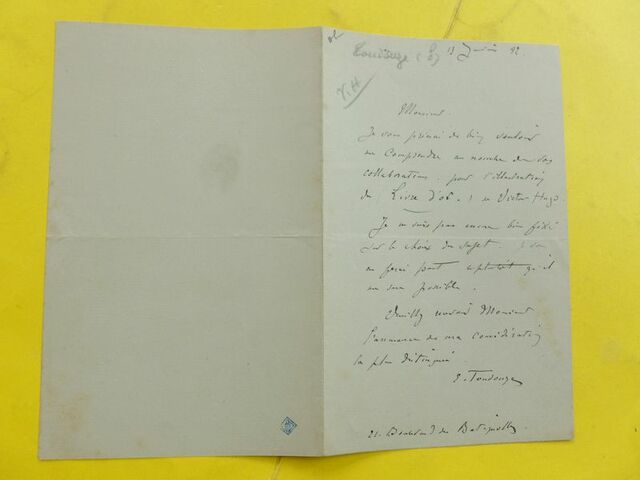 Toudouze (E) 13 Janvier 82.
V.H
Monsieur
Je vous prierai de bien vouloir
me comprendre au nombre de vos
collaborateurs pour l'illustration
du Livre d'or. de Victor Hugo.
Je ne suis pas encore bien fixé
sur le choix du sujet. Je vous
en ferai part qu'il
me sera possible.
Veuillez recevoir Monsieur
l'assurance de ma considération
la plus distinguée
E. Toudouze
21. Boulevard des Batignolles